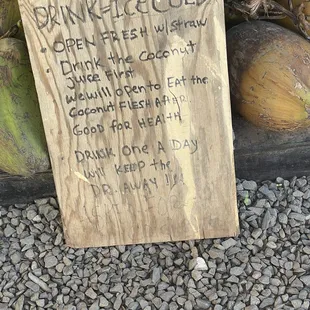 DRINK=ICE COLD
• OPEN FRESH w/straw
Drink the Coconut
Juice First
We will open to Eat the
Coconut FLESH AFTER
GOOD FOR HEALTH
DRINK ONE A DAY
Will KEEP the
DR. AWAY !!!